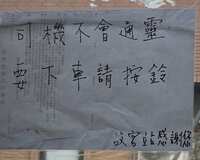 司機不會通靈
要下車請按鈴
宮站感謝您